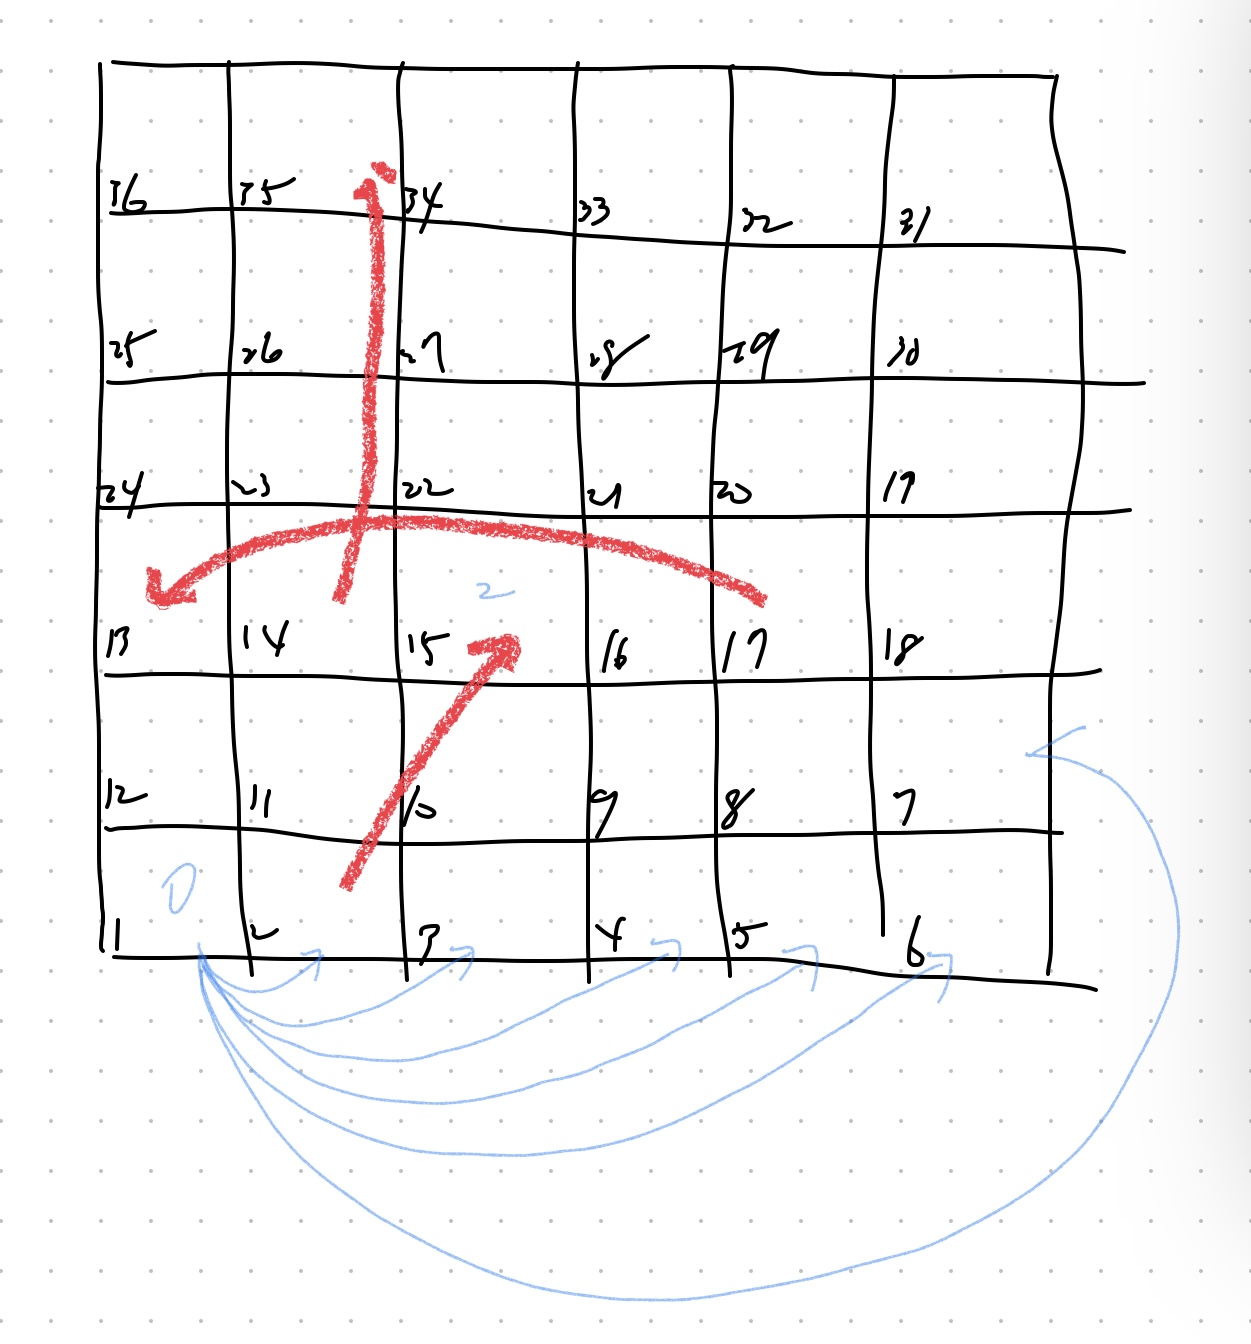 36 35 34 33 32 31
25 26 27 28 29 30
24 23 22 21 20 19
2
13 14 15 16 17 18
12 11 10 9 8 7
0
1 2 3 4 5 6